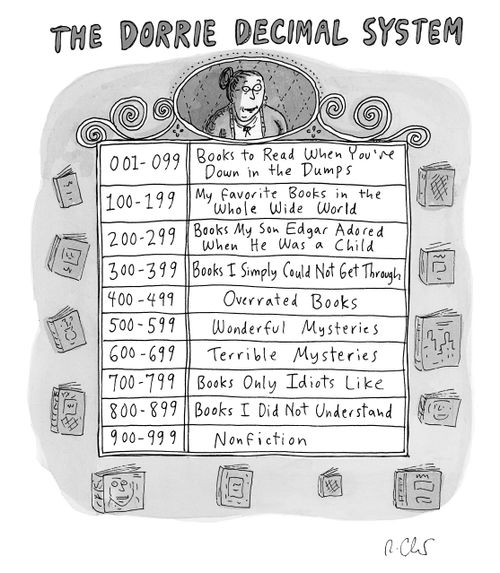 THE DORRIE DECIMAL SYSTEM
001-099 Books to Read When You're
Down in the Dumps
100-199 My Favorite Books in the
Whole Wide World
200-299 Books My Son Edgar Adored
When He Was a Child
300-399 Books I Simply Could Not Get Through
400-499 Overrated Books
500-599 Wonderful Mysteries
600-699 Terrible Mysteries
700-799 Books Only Idiots Like
800-899 Books I Did Not Understand
900-999 Nonfiction